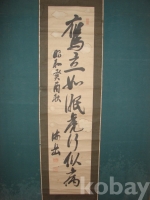 鷹立如眠虎行似病
昭和癸酉秋
kobay